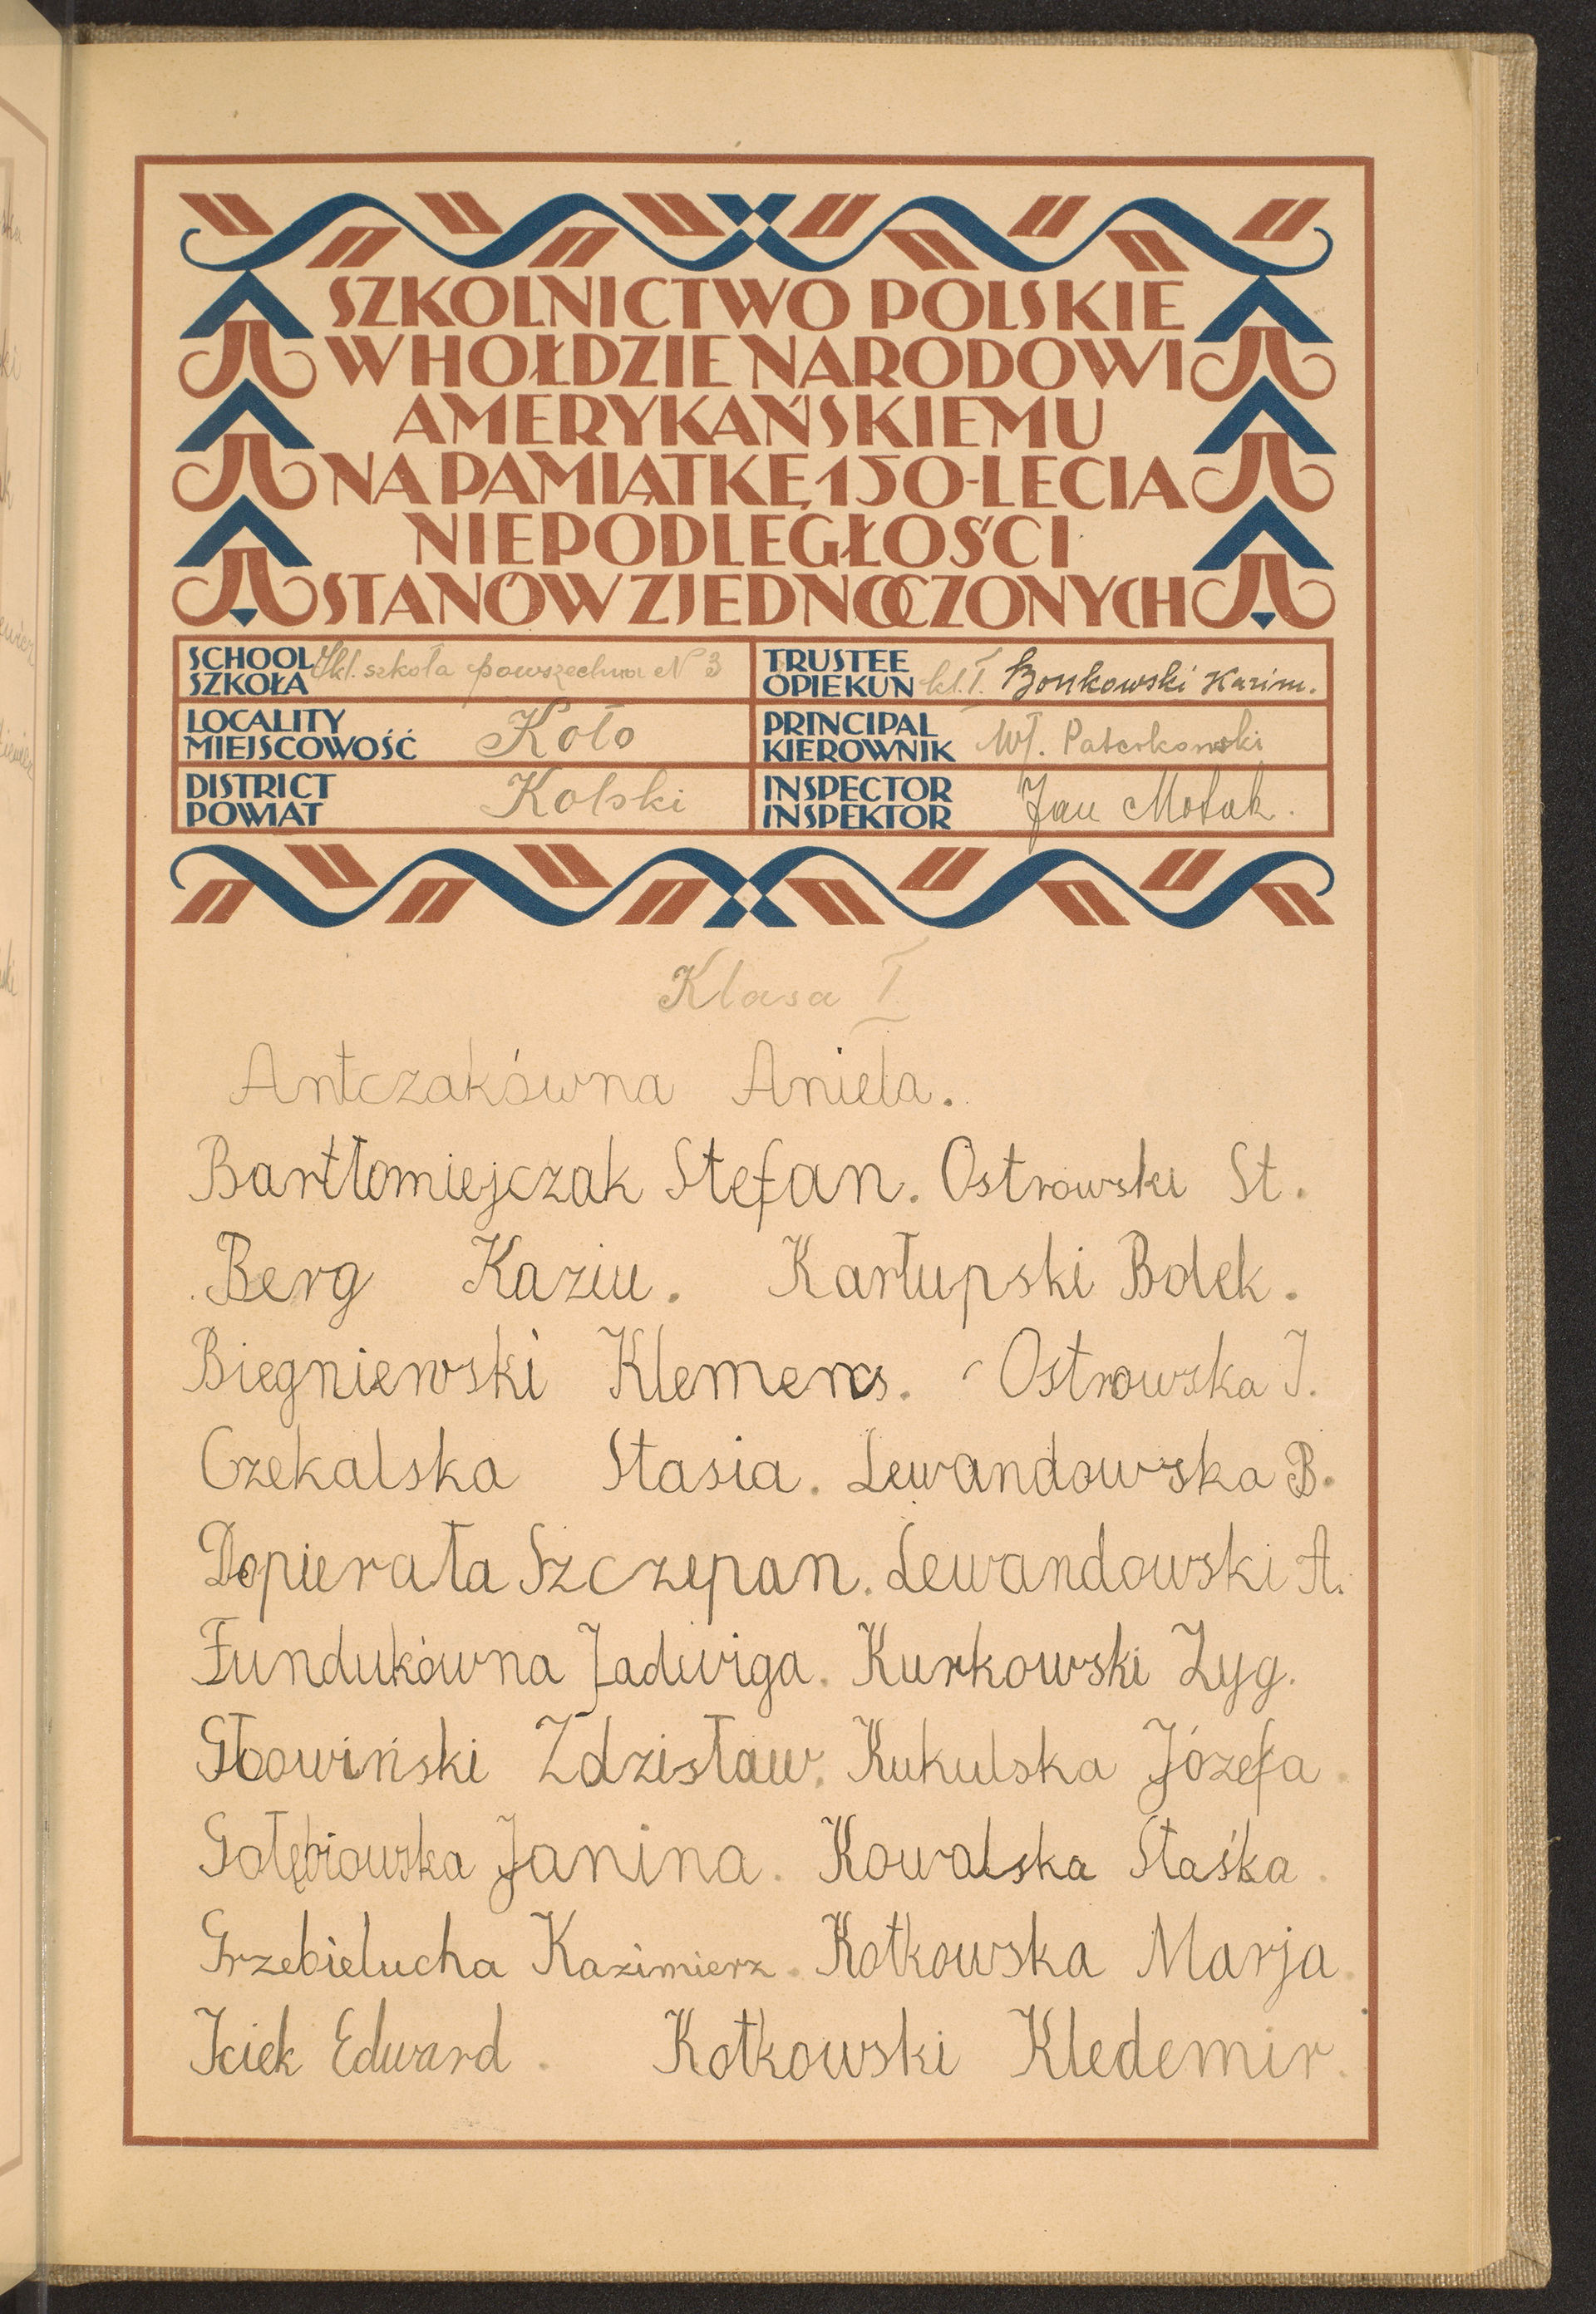 SZKOLNICTWO POLSKIE
W HOŁDZIE NARODOWI
AMERYKAŃSKIEMU
NA PAMIĄTKĘ 150-LECIA
NIEPODLEGŁOŚCI
STANÓW ZJEDNOCZONYCH
SCHOOL
SZKOŁA
7kl. szkoła powszechna N 3
TRUSTEE
OPIEKUN
kl. I. Bonkowski Kazim.
LOCALITY
MIEJSCOWOŚĆ
Koło
PRINCIPAL
KIEROWNIK
Wł. Paterkowski
DISTRICT
POWIAT
Kolski
INSPECTOR
INSPEKTOR
Jan
Klasa I
Antczakówna Aniela.
Bartłomiejczak Stefan. Ostrowski St.
Berg Kaziu. Karłupski Bolek.
Biegniewski Klemens. Ostrowska J.
Czekalska Stasia. Lewandowska B.
Dopierała Szczepan. Lewandowski A.
Fundukówna Jadwiga. Kurkowski Zyg.
Głowiński Zdzisław. Kukulska Józefa.
Gołębiowska Janina. Kowalska Staśka.
Grzebielucha Kazimierz. Kotkowska Marja.
Iciek Edward. Kotkowski Kledemir.